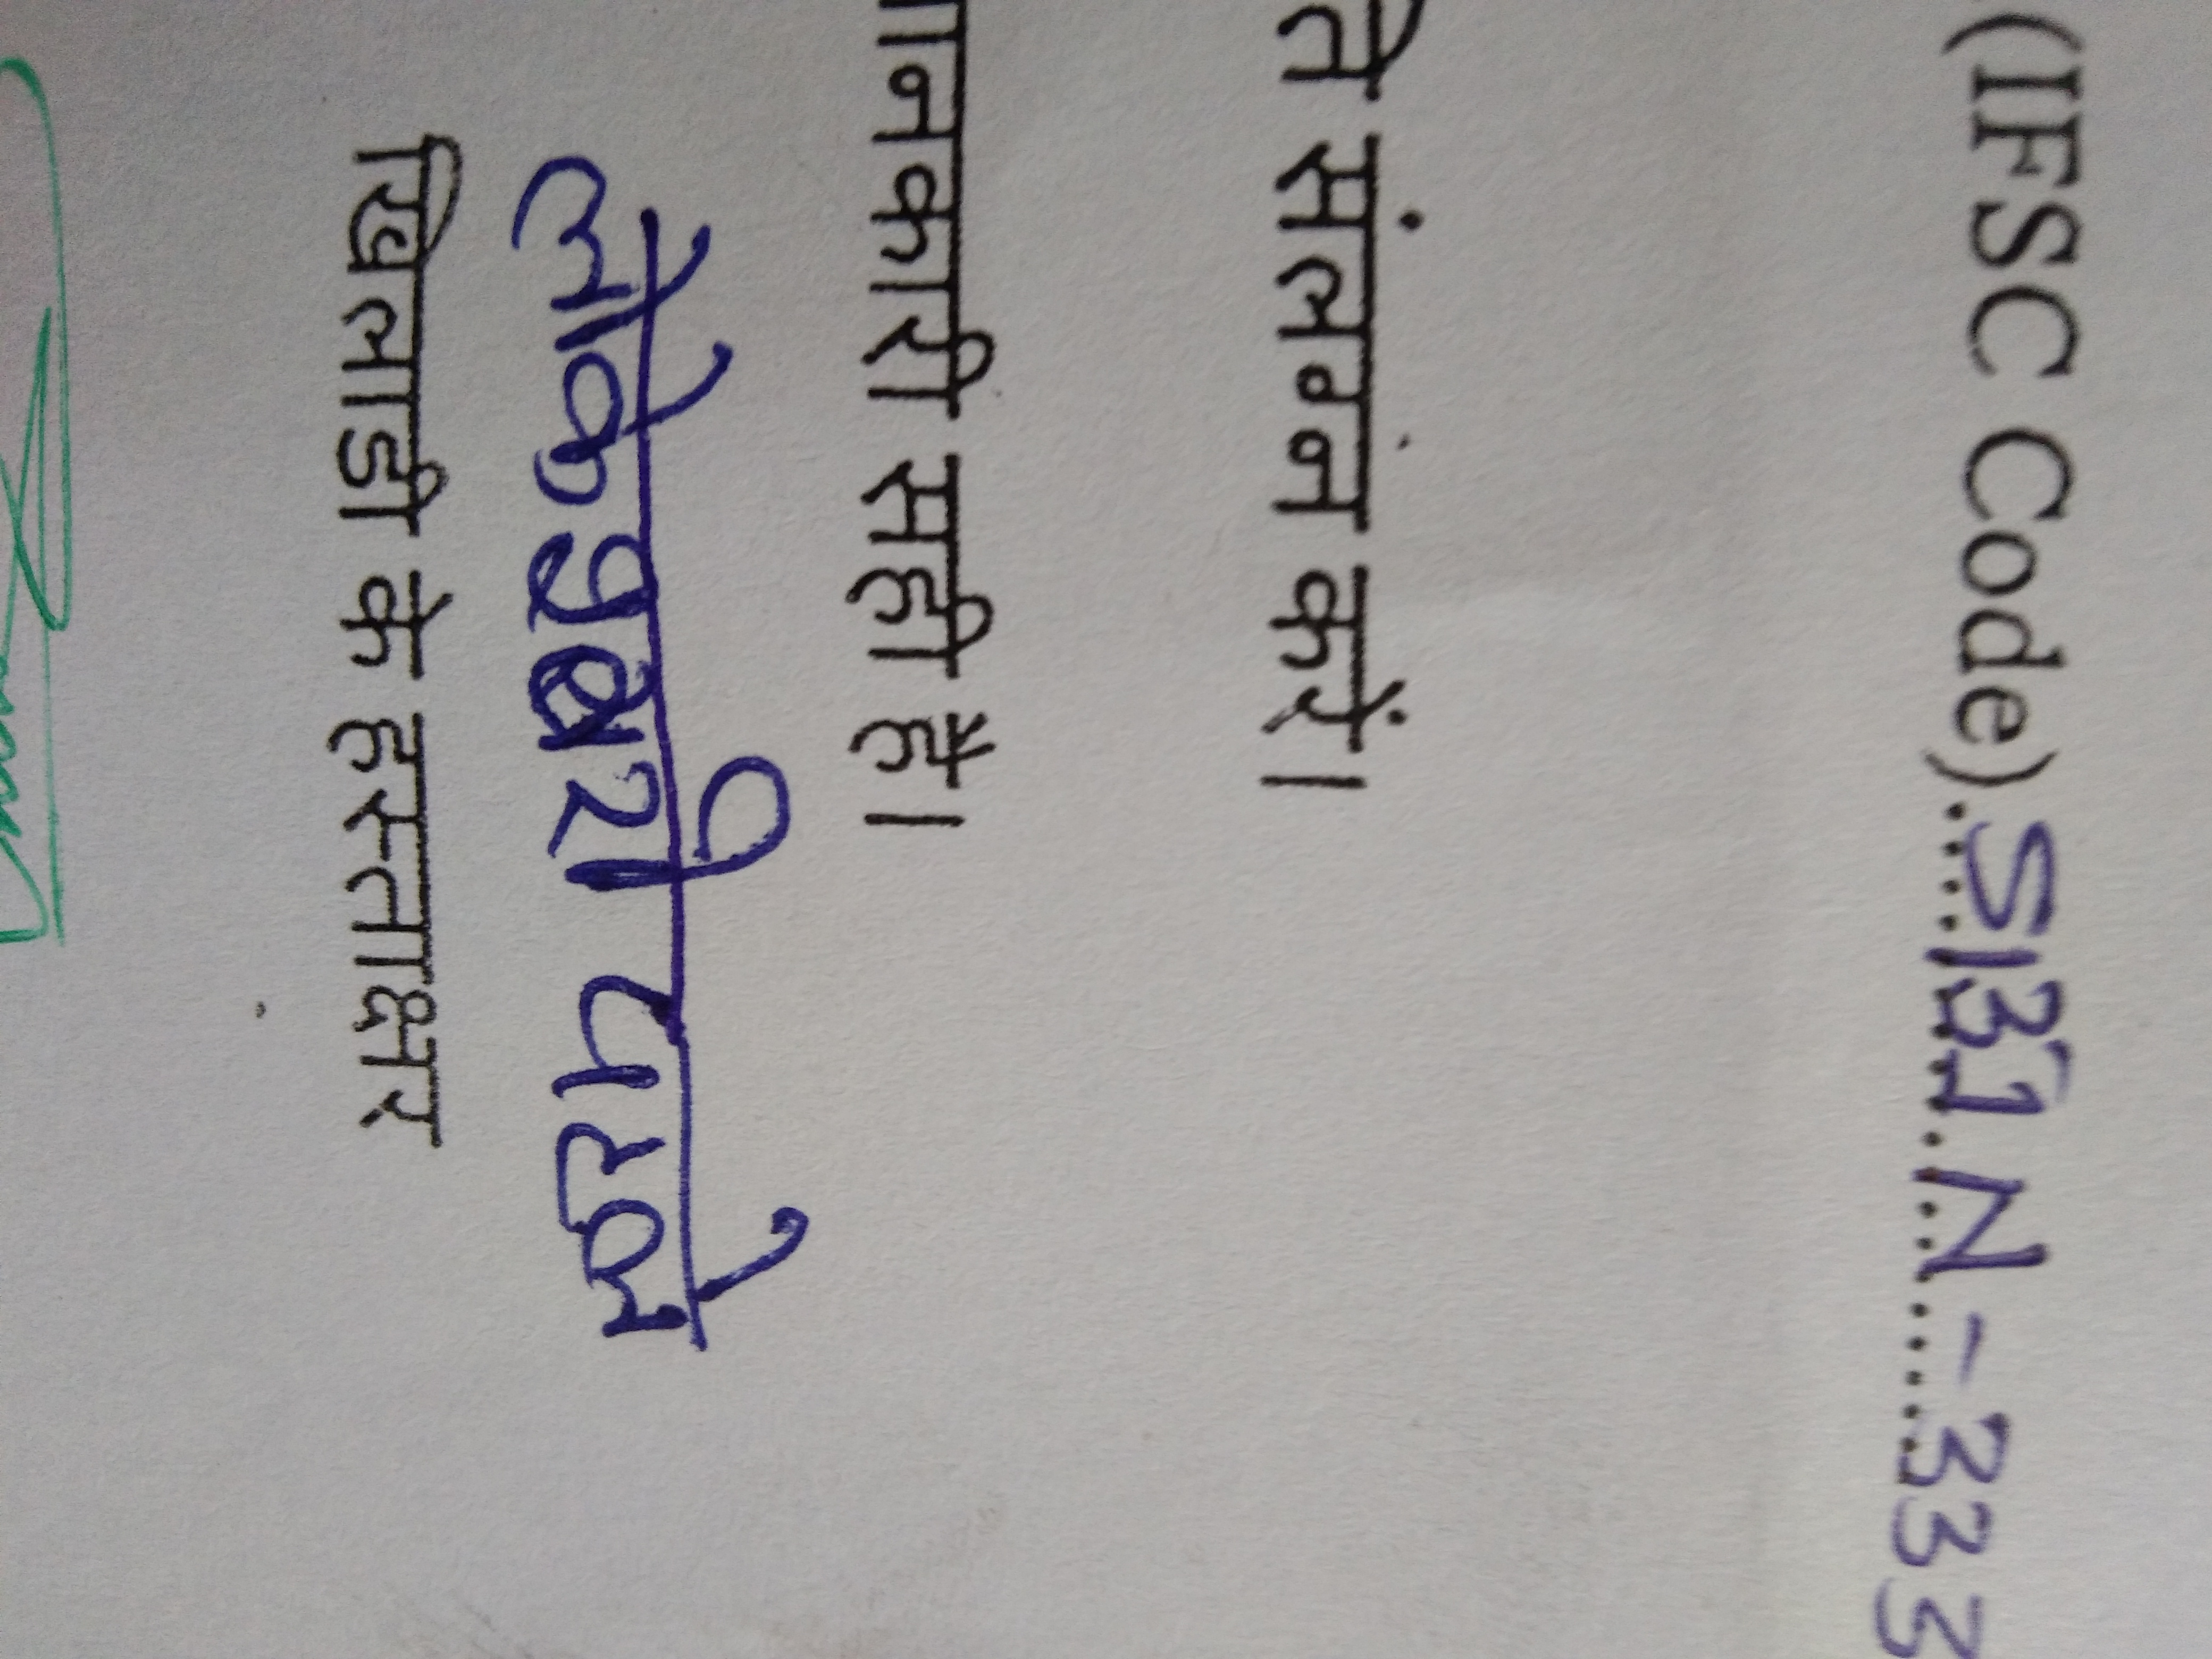 (IFSC Code) SBIN-333
ति संलग्न करें।
ानकारी सही है।
लोकेश्वरी पटले
खिलाडी के हस्ताक्षर